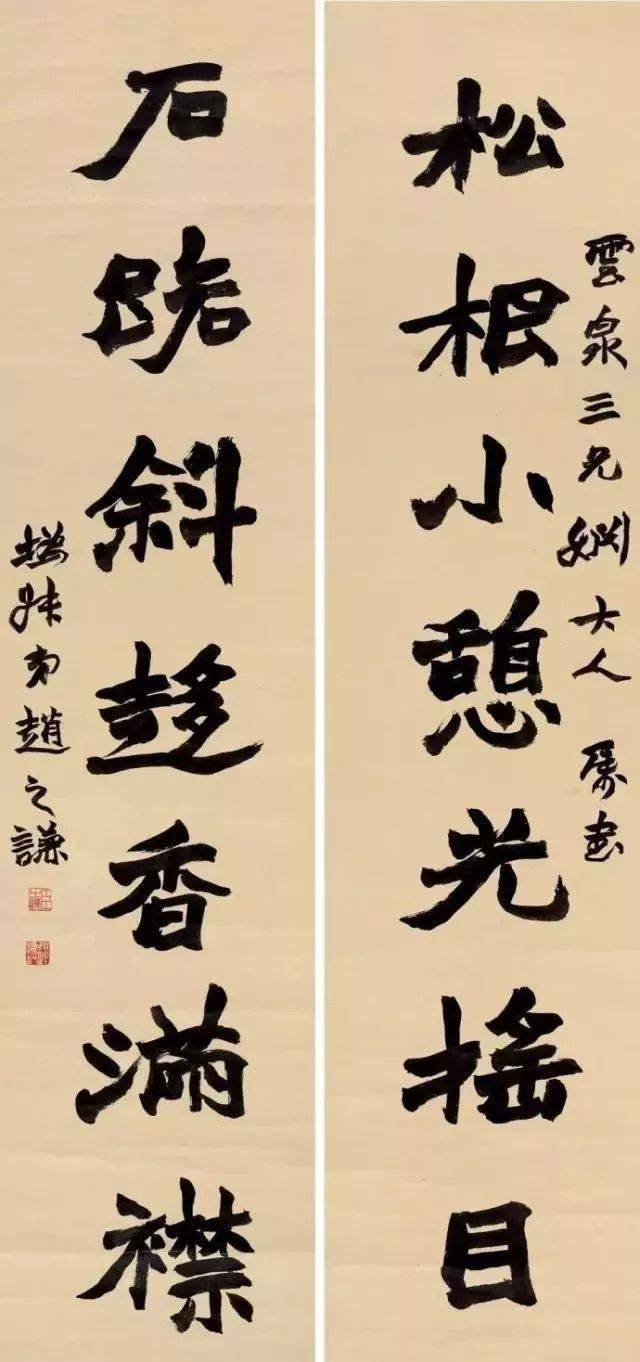 雲泉三兄姻大人屬書
松根小憩光搖目
石路斜趍香滿襟
撝叔弟趙之謙